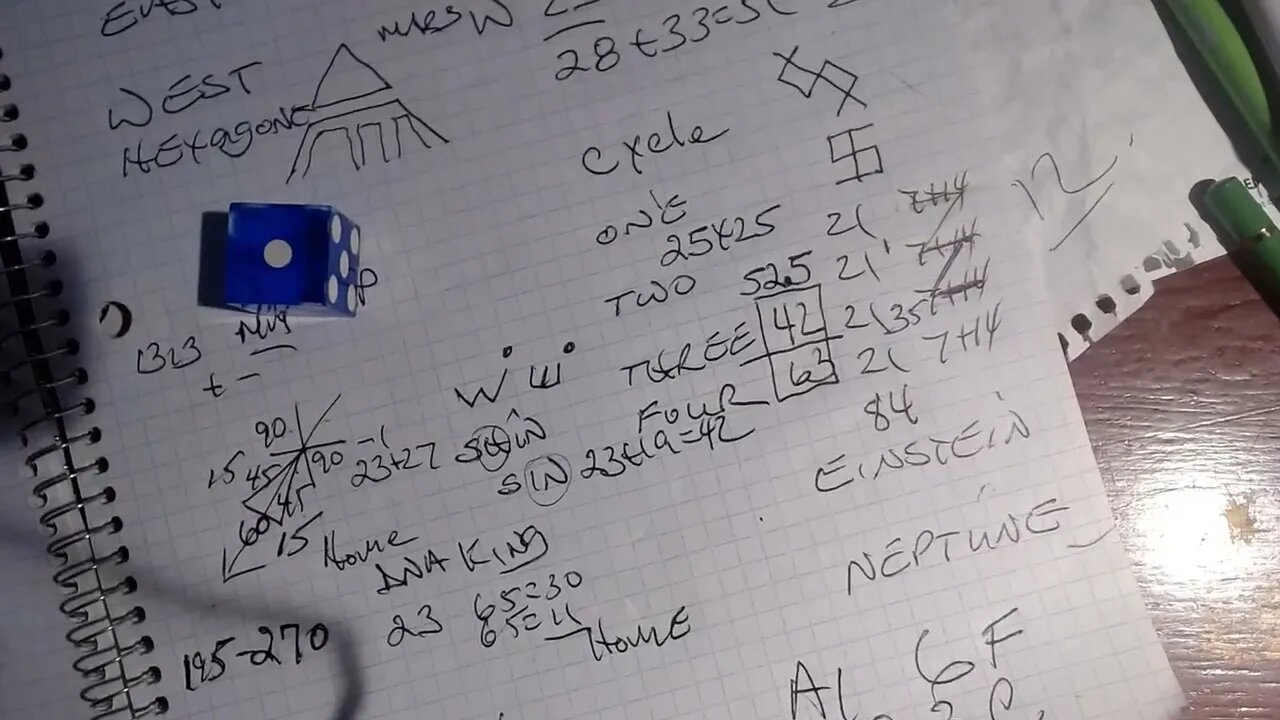 WEST
HEXAGONE
28+33=
Cycle
ONE
25+25 21 7+14
TWO 525 21 7+14
THREE 42 21 35 7+14
FOUR 63 21 7+14
84
12
1323
+ -
90
15 45 90 -1
23+27
60 45
15
SIN
SIN 23+19=42
EINSTEIN
NEPTUNE
Home
DNA KING
23 65=30
65=11
HOME
195-270
6F
Al